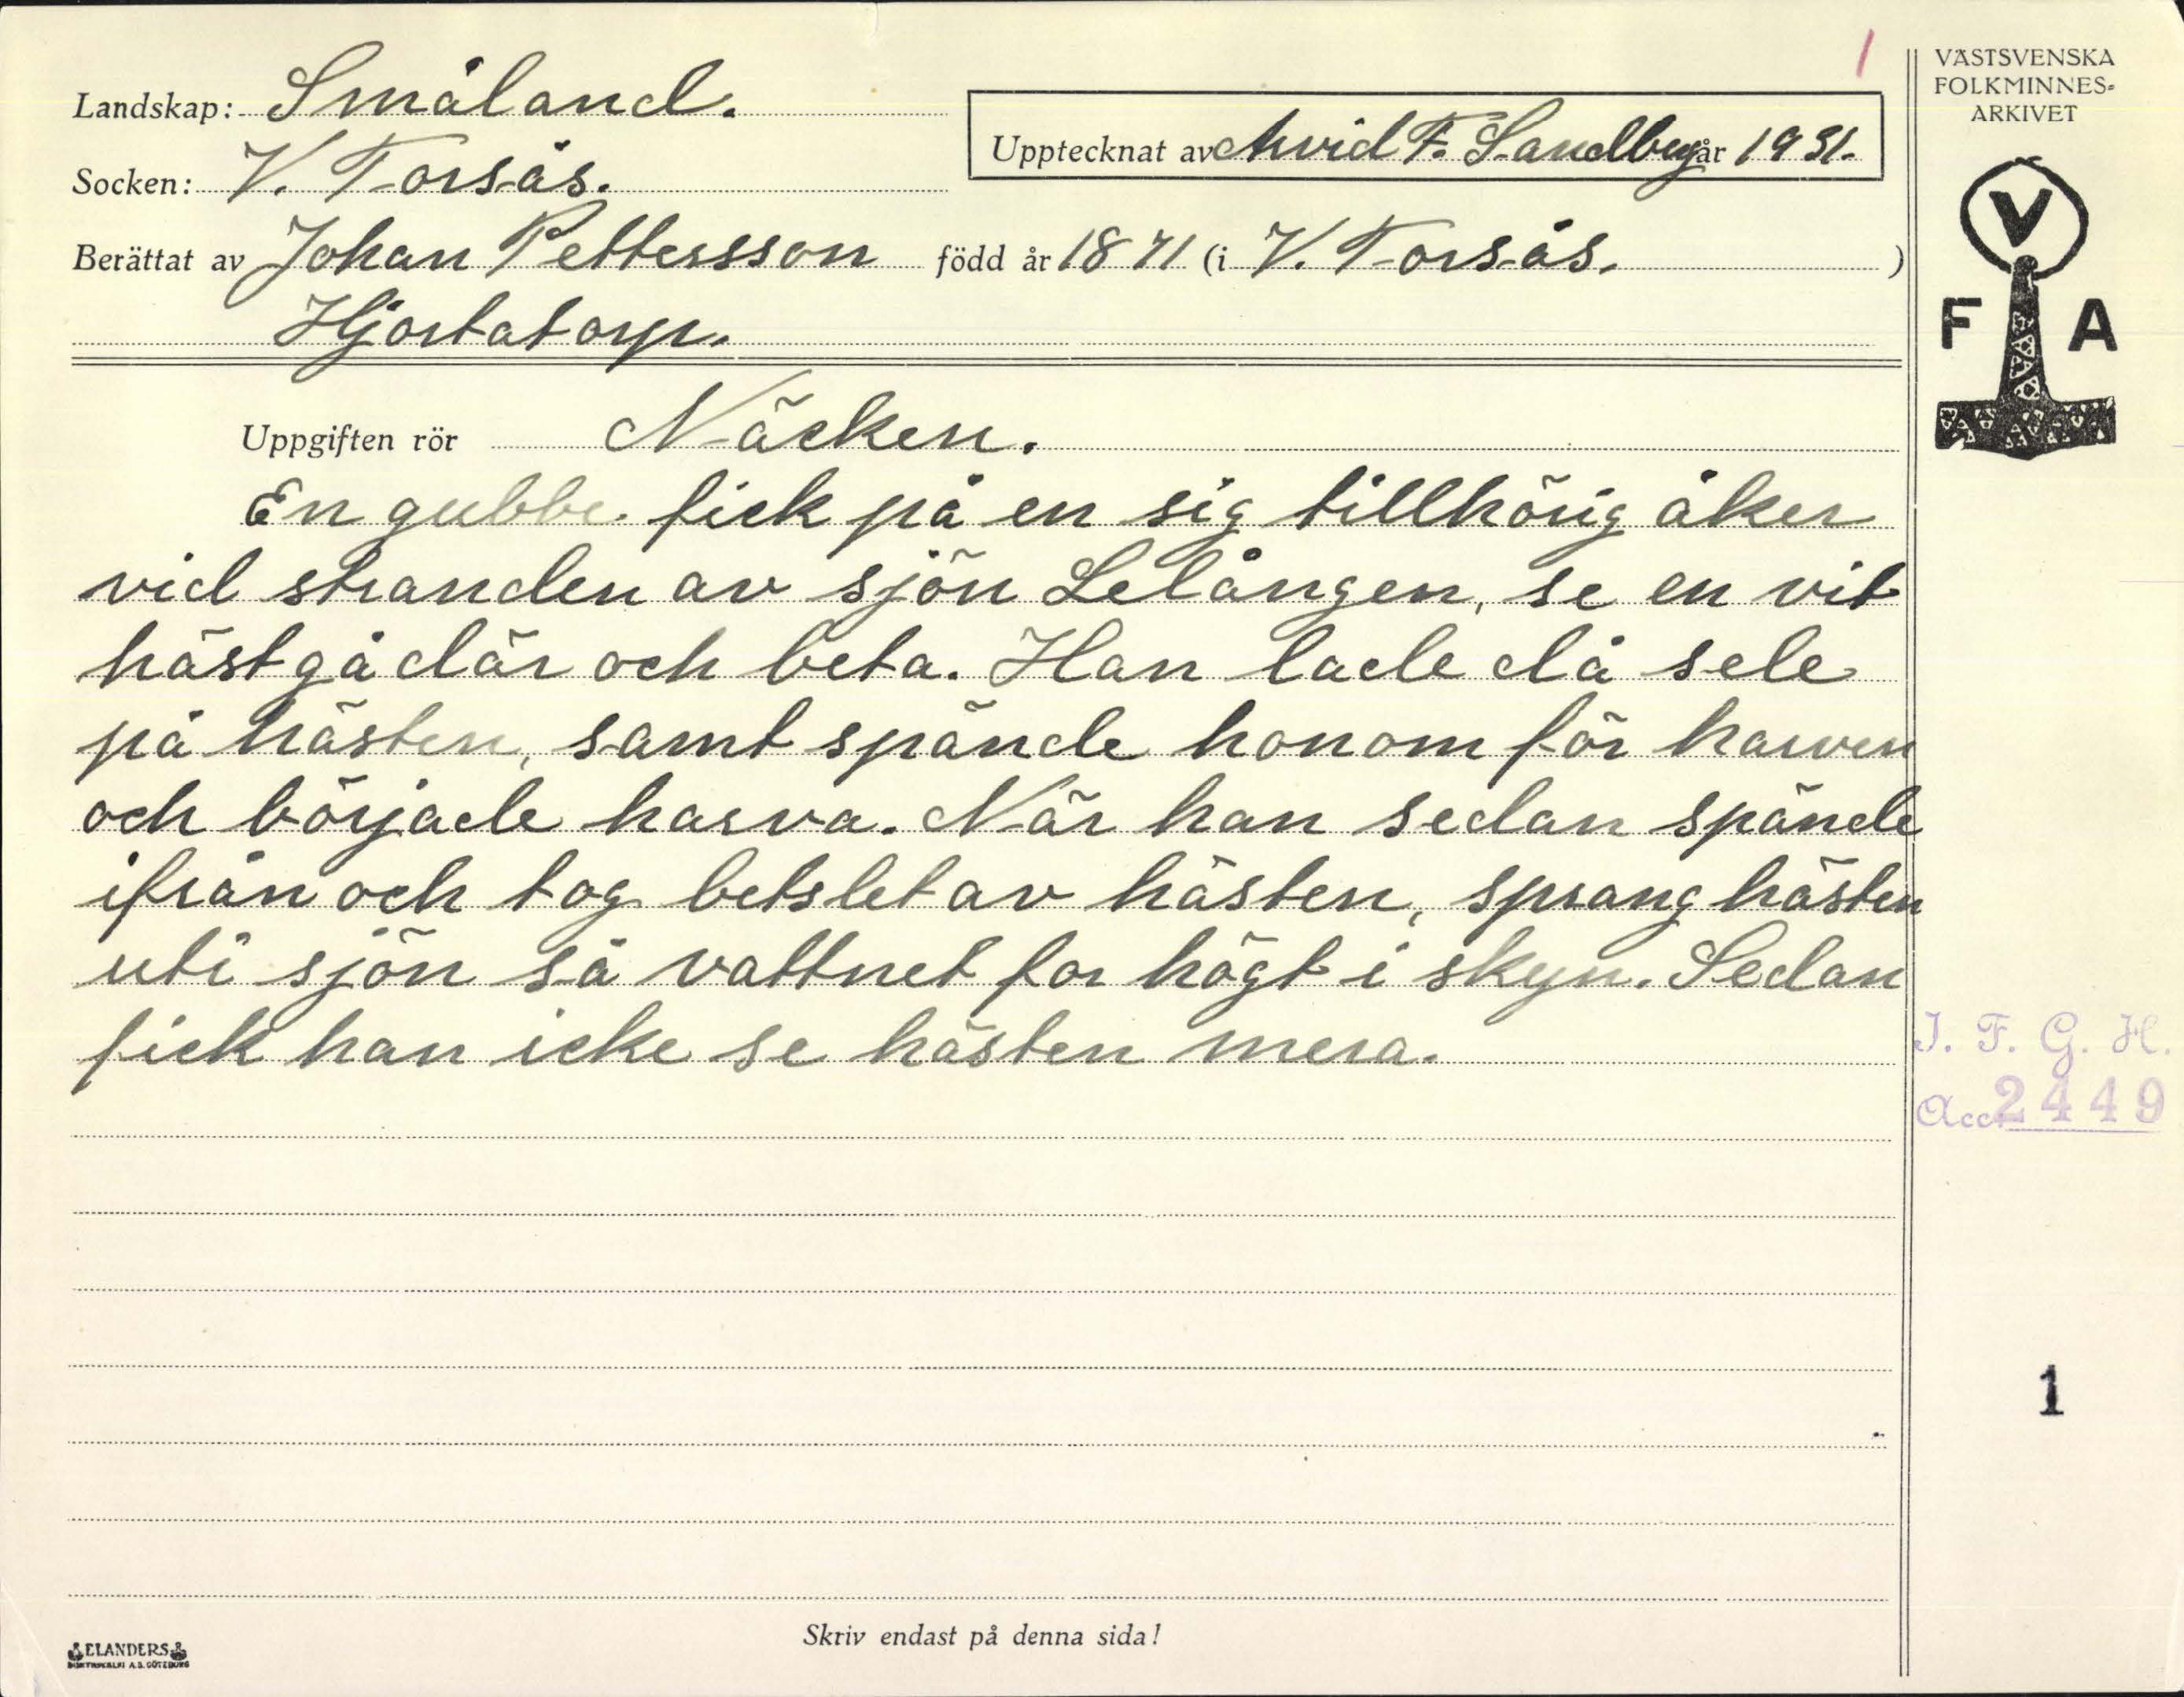 1
VÄSTSVENSKA
FOLKMINNES-
ARKIVET
Landskap: Småland.
Upptecknat av Arvid F. Sandberg år 1931.
Socken: V. Torsås.
Berättat av Johan Pettersson född år 1871 (i V. Torsås. )
Hjortatorp.
V
F A
Uppgiften rör Näcken.
En gubbe fick på en sig tillhörig åker
vid stranden av sjön Lelången, se en vit
häst gå där och beta. Han lade då sele
på hästen, samt spände honom för harven
och började harva. När han sedan spände
ifrån och tog betslet av hästen, sprang hästen
uti sjön så vattnet for högt i skyn. Sedan
fick han icke se hästen mera.
I. F. G. H.
Acc. 2449
1
Skriv endast på denna sida!
ELANDERS
BOKTRYCKERI A.B. GÖTEBORG